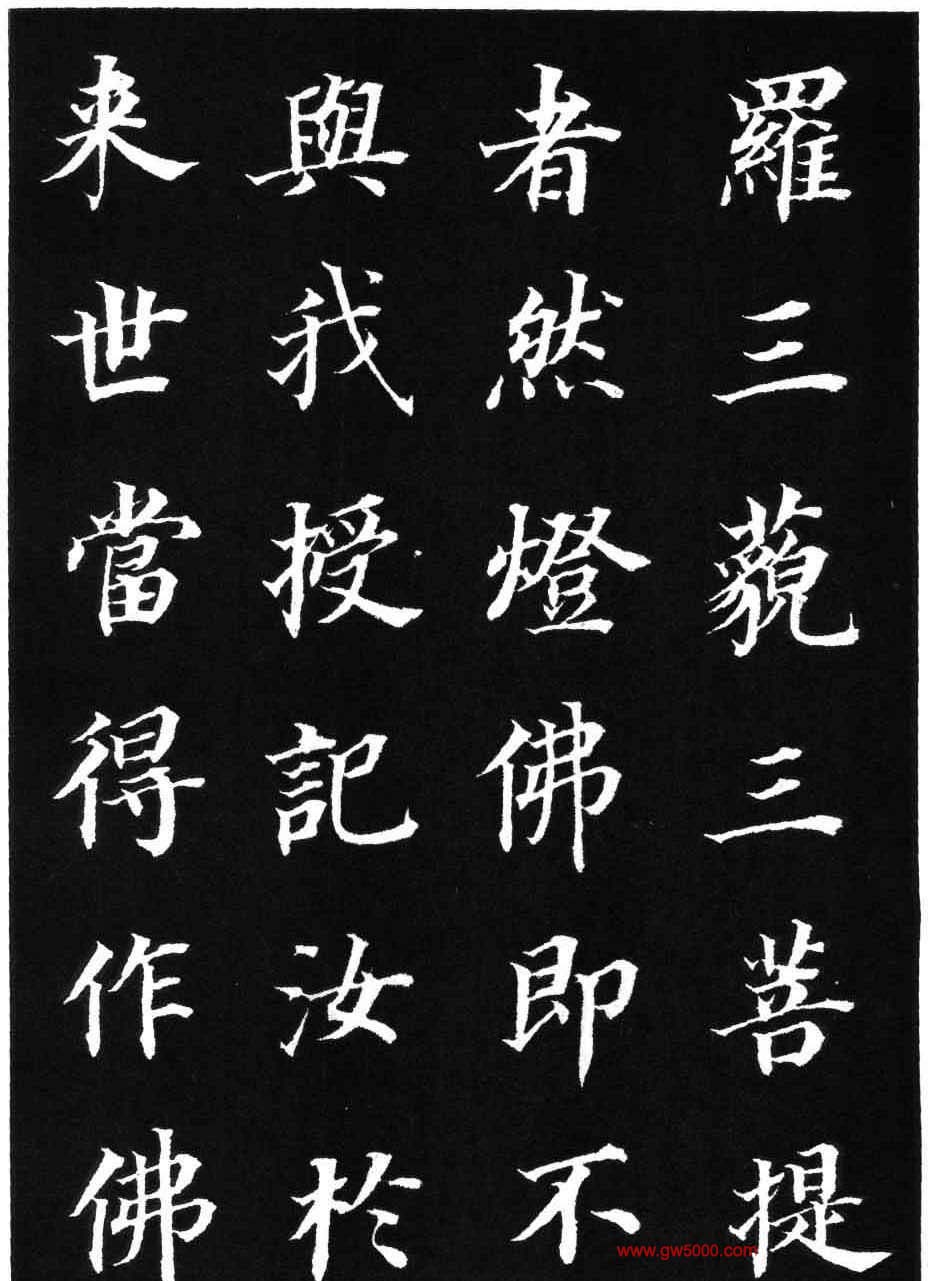 羅三藐三菩提
者然燈佛即不
與我授記汝於
来世當得作佛
www.gw5000.com